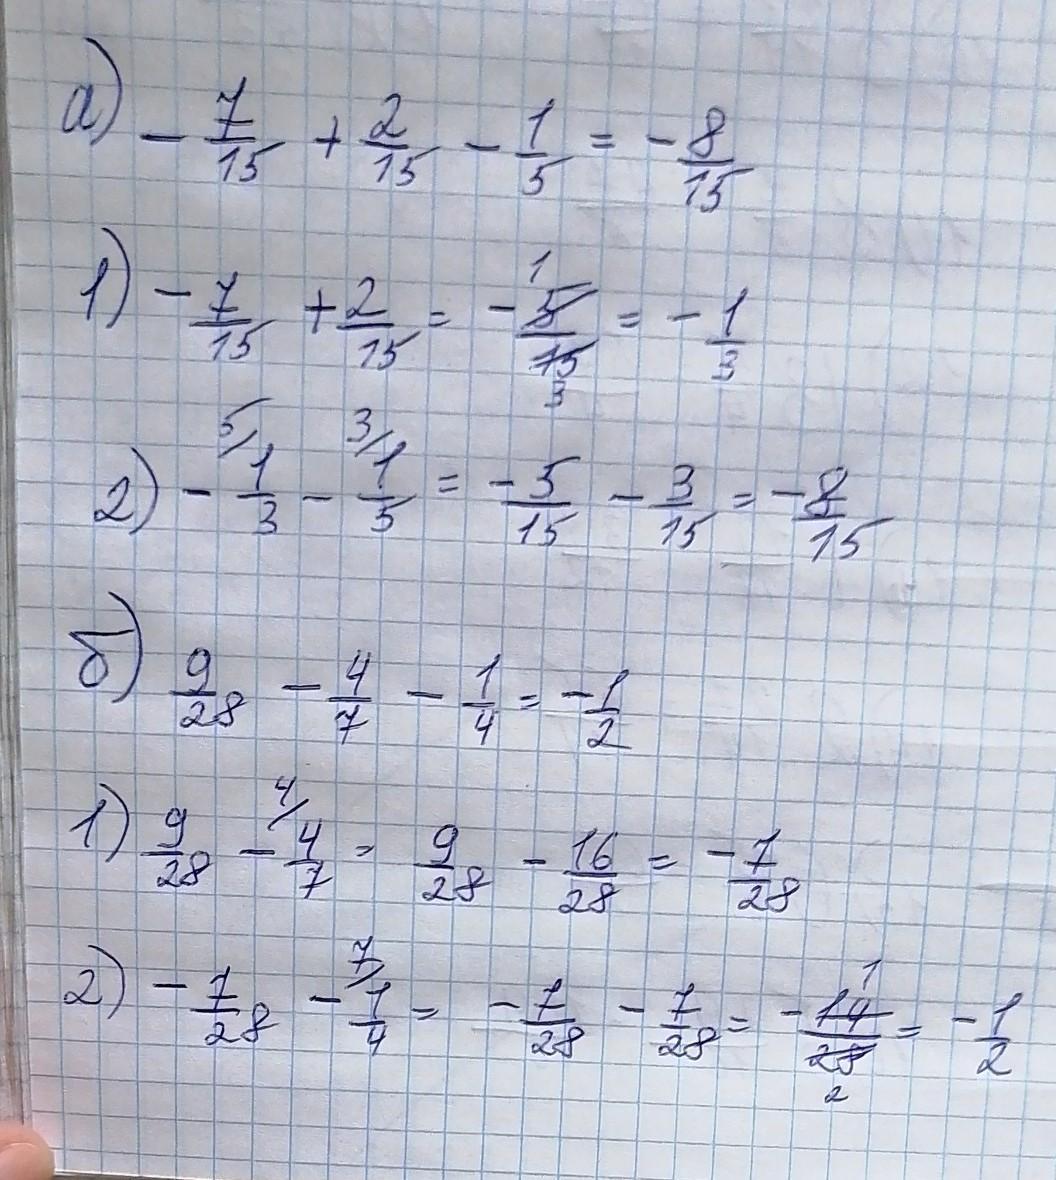 а) - 7/15 + 2/15 - 1/5 = - 8/15
1) - 7/15 + 2/15 = - 5/15 (1/3) = - 1/3
2) - 5/ 1/3 - 3/ 1/5 = - 5/15 - 3/15 = - 8/15
б) 9/28 - 4/7 - 1/4 = - 1/2
1) 9/28 - 4/ 4/7 = 9/28 - 16/28 = - 7/28
2) - 7/28 - 7/ 1/4 = - 7/28 - 7/28 = - 14/28 (1/2) = - 1/2